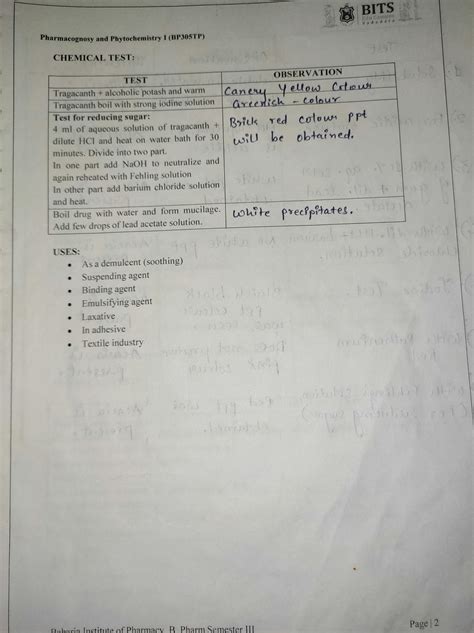 BITS
Pharmacognosy and Phytochemistry I (BP305TP)
CHEMICAL TEST:
TEST
OBSERVATION
Tragacanth + alcoholic potash and warm
Canery Yellow Colour
Tragacanth boil with strong iodine solution
Greenich - colour
Test for reducing sugar:
4 ml of aqueous solution of tragacanth +
dilute HCl and heat on water bath for 30
minutes. Divide into two part.
In one part add NaOH to neutralize and
again reheated with Fehling solution
In other part add barium chloride solution
and heat.
Brick red colour ppt
will be obtained.
Boil drug with water and form mucilage.
Add few drops of lead acetate solution.
White precipitates.
USES:
• As a demulcent (soothing)
• Suspending agent
• Binding agent
• Emulsifying agent
• Laxative
• In adhesive
• Textile industry
Page | 2
Institute of Pharmacy, B. Pharm Semester III